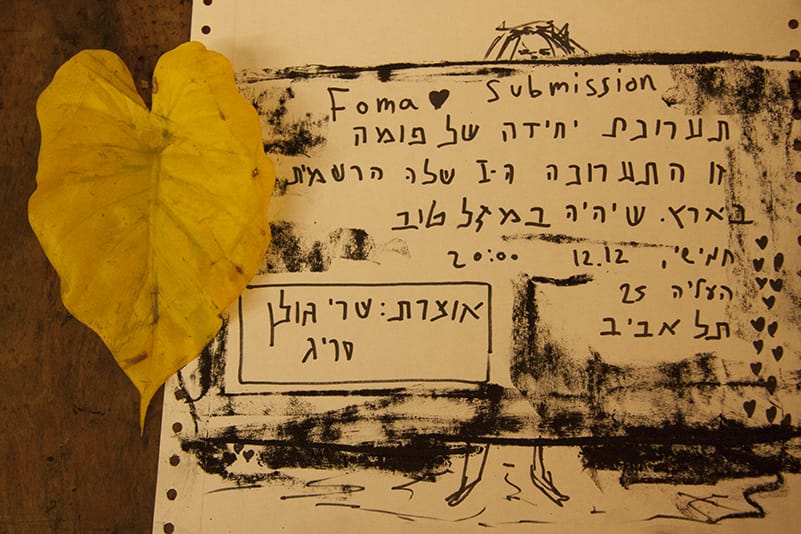 Foma ♥ Submission
תערוכת יחידה של פומה
זו התערוכה ה-I שלה הרשמית
בארץ. שיהיה במזל טוב
חמישי, 12.12 20:00
העליה 25
תל אביב
אוצרת: שרי גולן
סריג